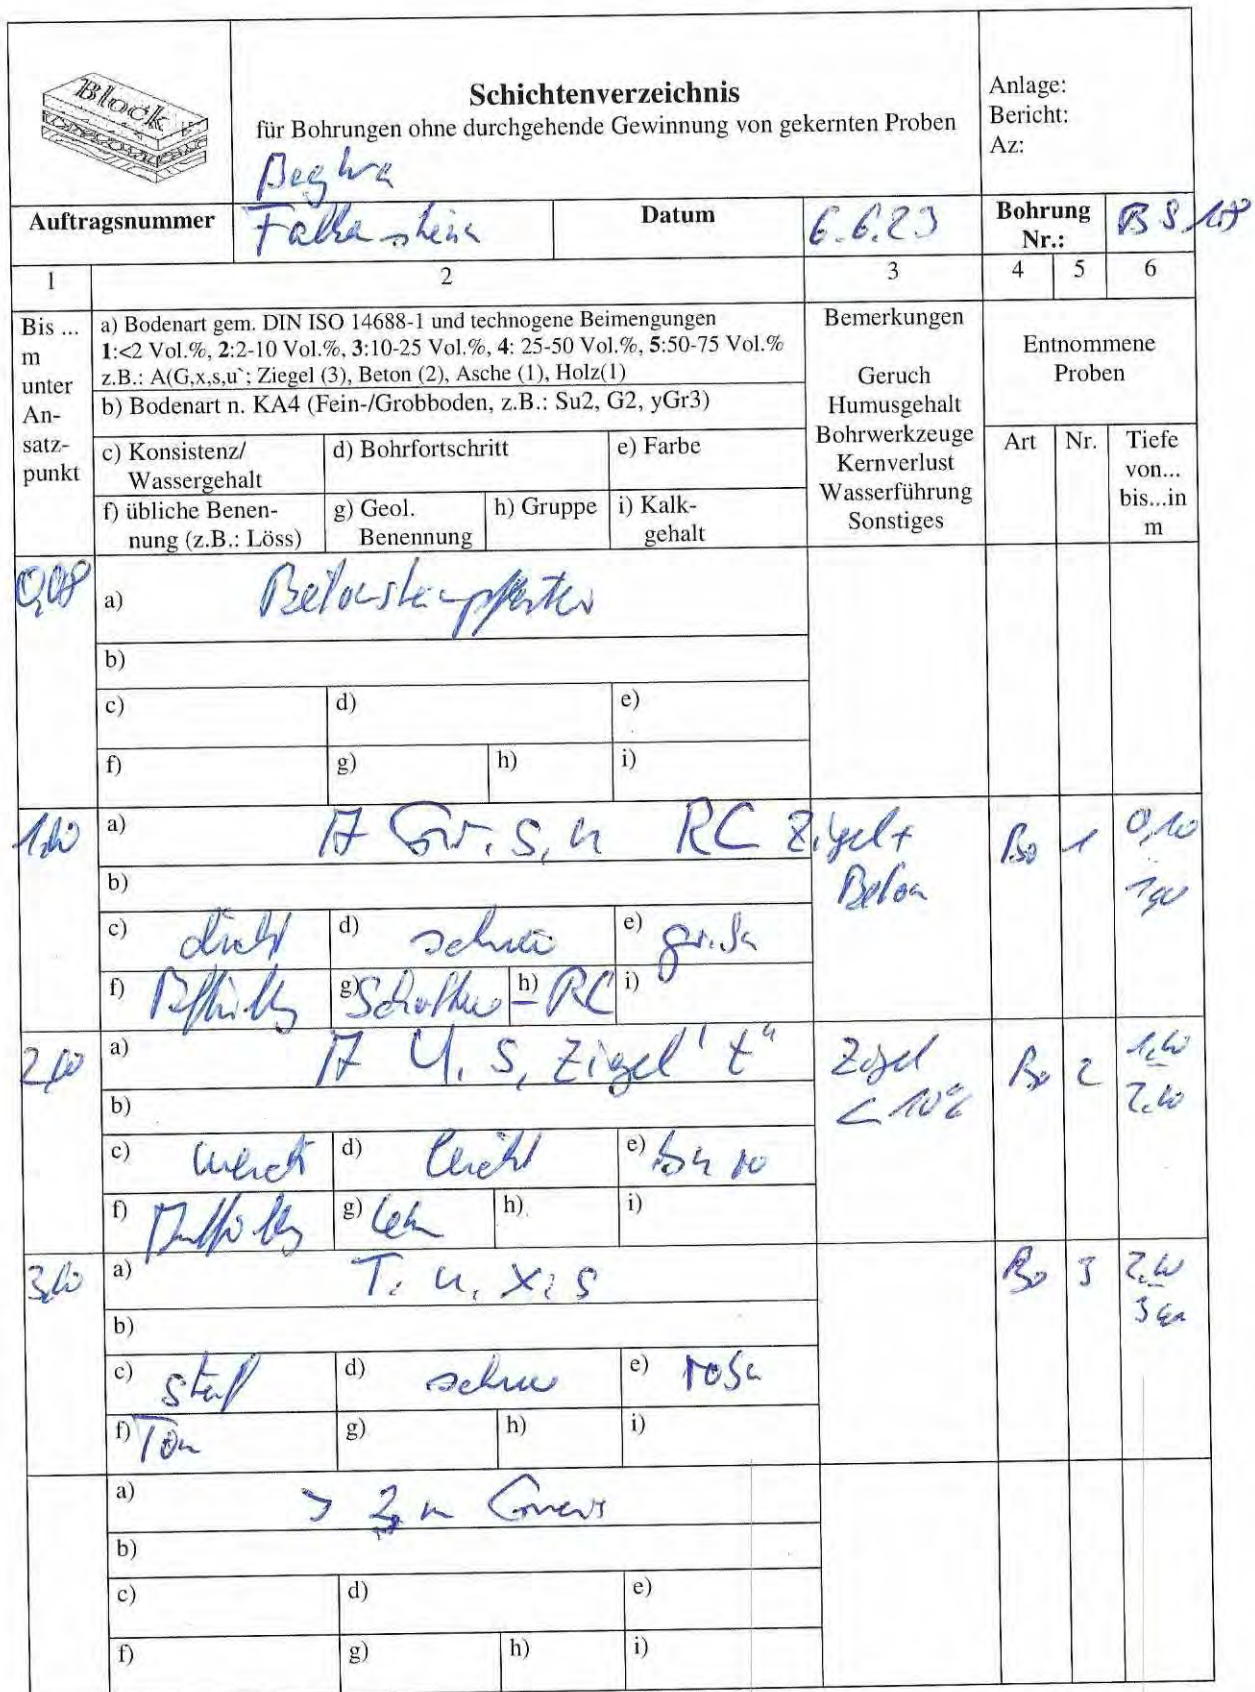 Block
Schichtenverzeichnis
für Bohrungen ohne durchgehende Gewinnung von gekernten Proben
Anlage:
Bericht:
Az:
Auftragsnummer
Datum
6.6.23
Bohrung
Nr.:
BS 18
1
2
3
4
5
6
Bis ...
m
unter
An-
satz-
punkt
a) Bodenart gem. DIN ISO 14688-1 und technogene Beimengungen
1:<2 Vol.%, 2:2-10 Vol.%, 3:10-25 Vol.%, 4: 25-50 Vol.%, 5:50-75 Vol.%
z.B.: A(G,x,s,u`; Ziegel (3), Beton (2), Asche (1), Holz(1)
b) Bodenart n. KA4 (Fein-/Grobboden, z.B.: Su2, G2, yGr3)
c) Konsistenz/
Wassergehalt
d) Bohrfortschritt
e) Farbe
f) übliche Benen-
nung (z.B.: Löss)
g) Geol.
Benennung
h) Gruppe
i) Kalk-
gehalt
Bemerkungen
Geruch
Humusgehalt
Bohrwerkzeuge
Kernverlust
Wasserführung
Sonstiges
Entnommene
Proben
Art
Nr.
Tiefe
von...
bis...in
m
0,08
a) Betonsteinpflaster
b)
c)
d)
e)
f)
g)
h)
i)
a) A Gr, s, u RC Ziegel +
Beton
Bo
1
b)
c) dicht
d) schwer
e)
f) Auffüllung
g) Schotter
h) - RC
i)
a) A U, s, Ziegel' t"
Ziegel
< 10%
Bo
2
b)
c) weich
d) leicht
e)
f) Auffüllung
g) Lehm
h)
i)
a) T, u, x, s
Bo
3
b)
c) steif
d) schwer
e) rosa
f) Ton
g)
h)
i)
a) > 3 m Gneis
b)
c)
d)
e)
f)
g)
h)
i)